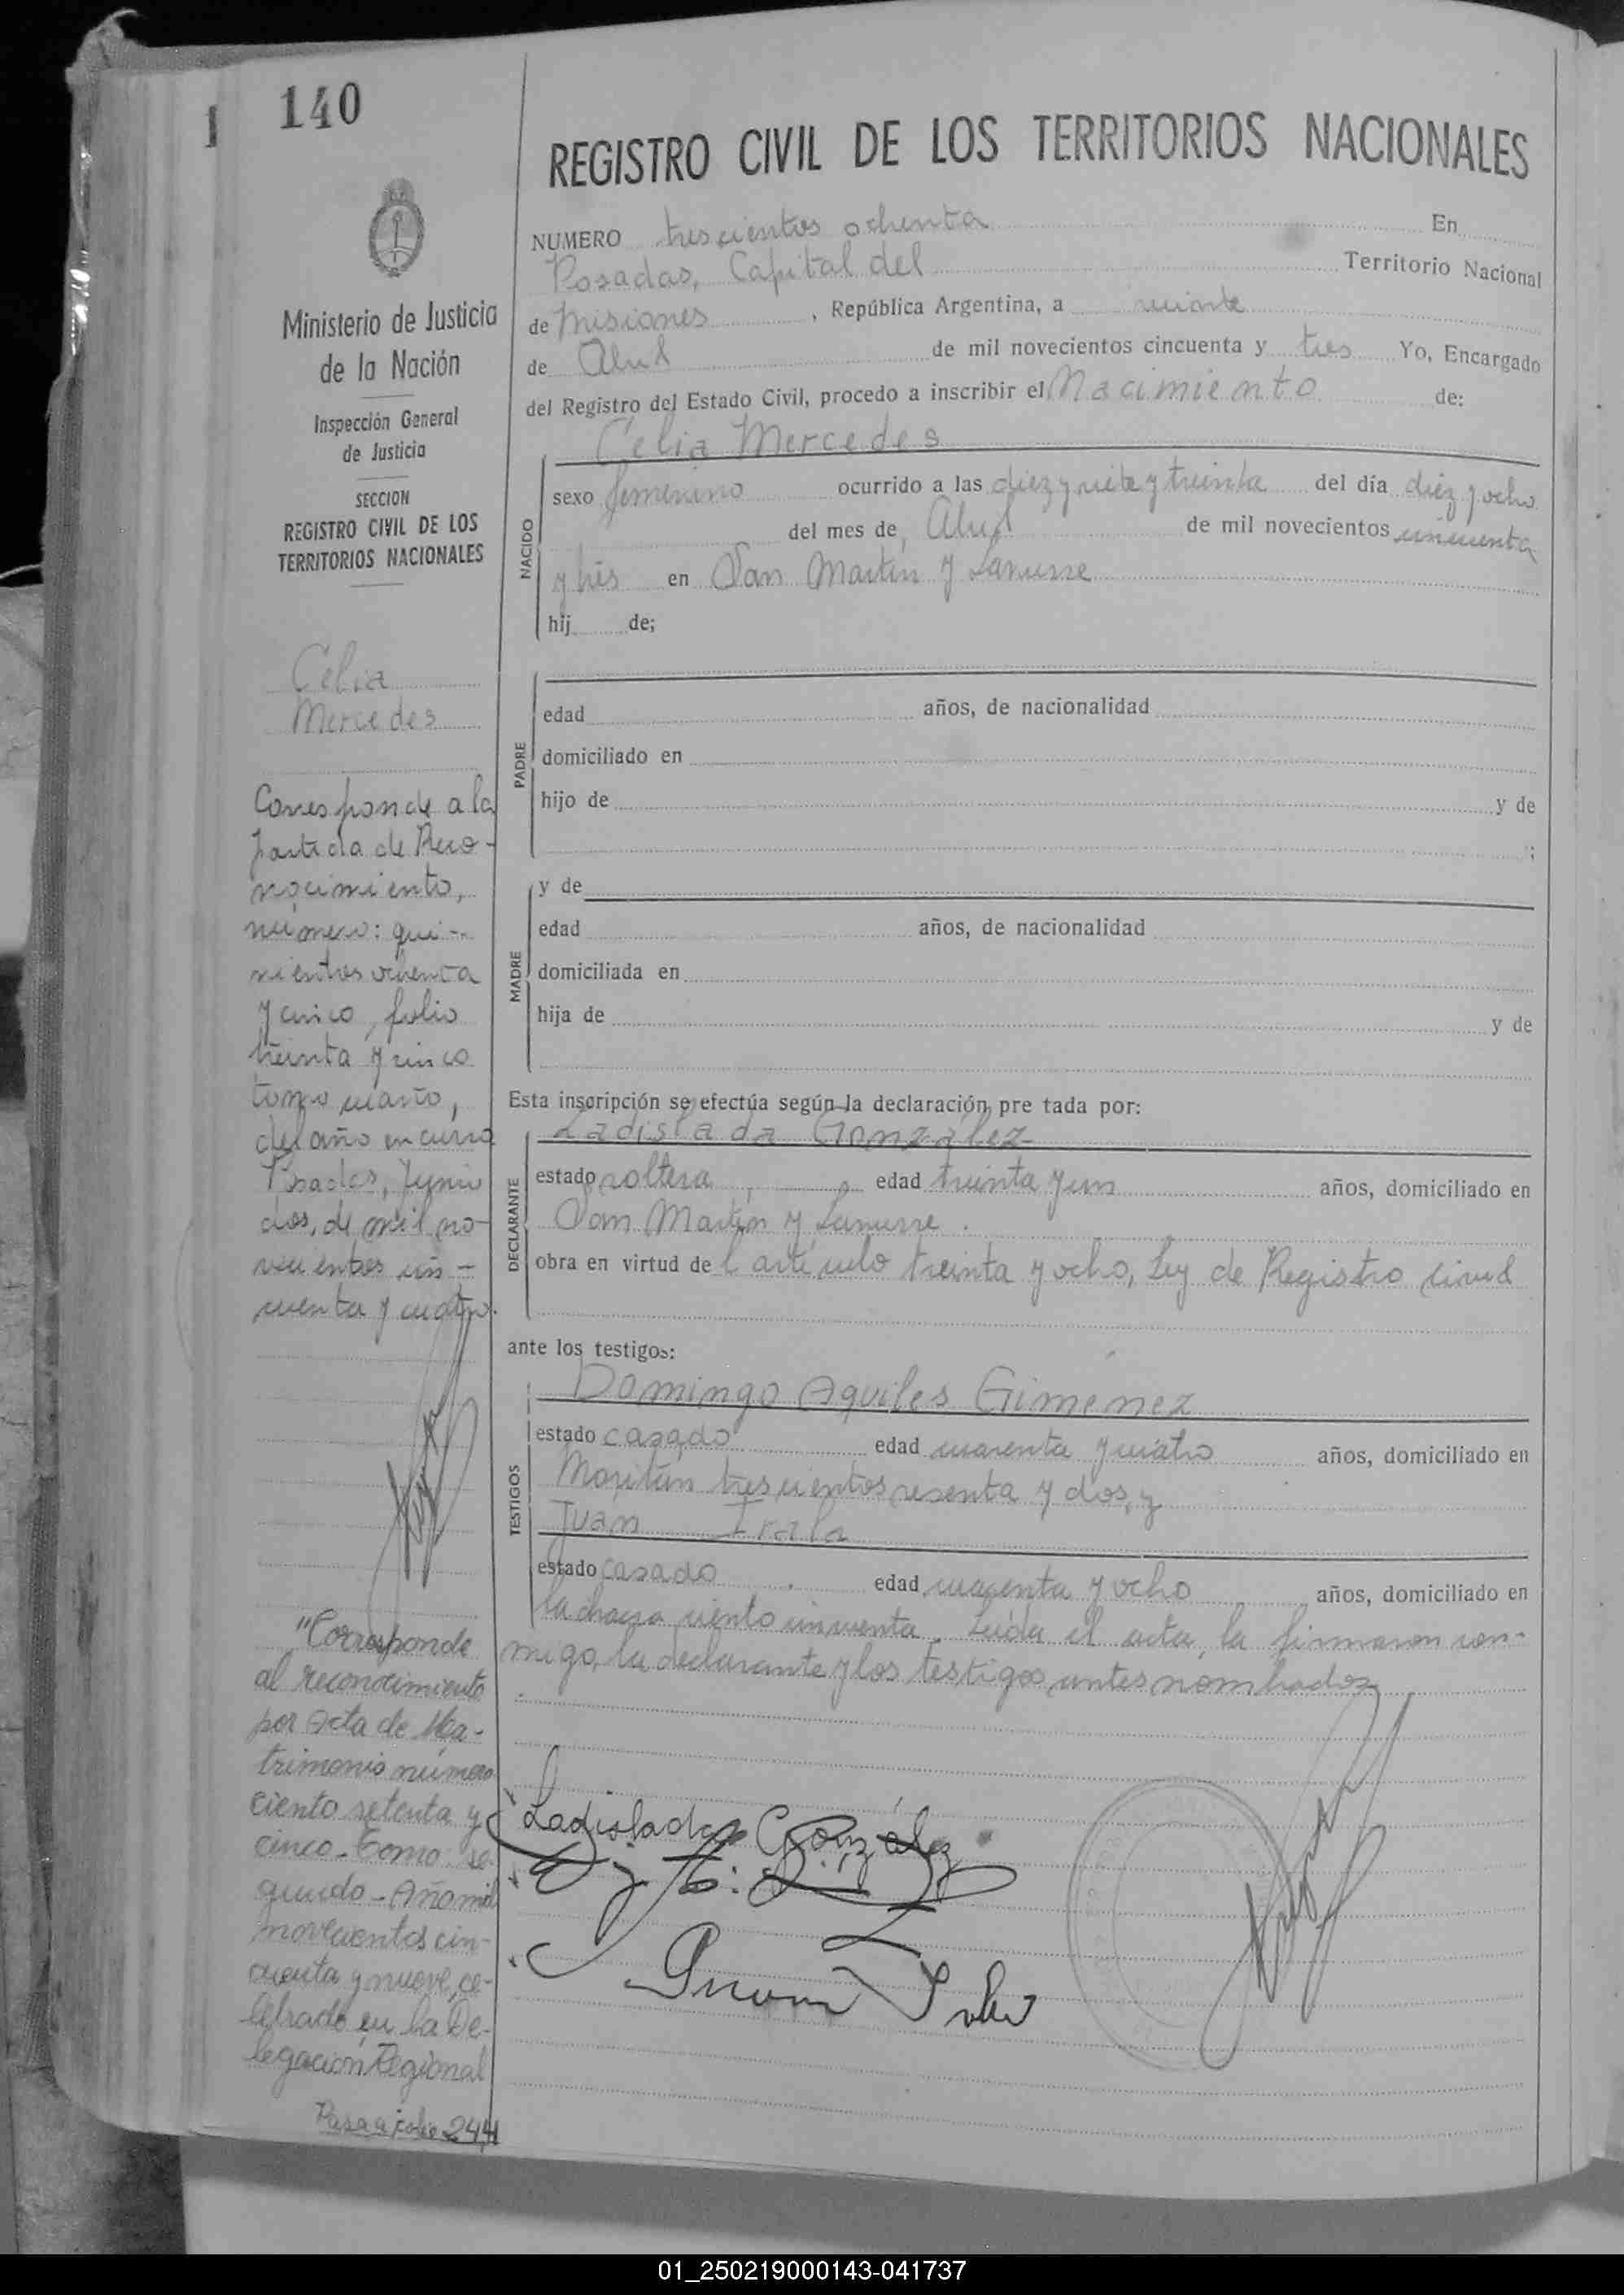 140
REGISTRO CIVIL DE LOS TERRITORIOS NACIONALES
Ministerio de Justicia
de la Nación
Inspección General
de Justicia
SECCION
REGISTRO CIVIL DE LOS
TERRITORIOS NACIONALES
NUMERO trescientos ochenta En
Posadas, Capital del Territorio Nacional
de Misiones, República Argentina, a veinte
de Abril de mil novecientos cincuenta y tres Yo, Encargado
del Registro del Estado Civil, procedo a inscribir el Nacimiento de:
Celia Mercedes
NACIDO
sexo femenino ocurrido a las diez y siete y treinta del día diez y ocho
del mes de Abril de mil novecientos cincuenta
y tres en San Martin y Lanusse
hij de;
PADRE
edad años, de nacionalidad
domiciliado en
hijo de y de
;
MADRE
y de
edad años, de nacionalidad
domiciliada en
hija de y de
Esta inscripción se efectúa según la declaración pre tada por:
DECLARANTE
Ladislada González
estado soltera, edad treinta y un años, domiciliado en
San Martin y Lanusse.
obra en virtud del artículo treinta y ocho, Ley de Registro Civil
ante los testigos:
TESTIGOS
Domingo Aquiles Giménez
estado casado edad cuarenta y cuatro años, domiciliado en
trescientos sesenta y dos, y
Juan Irala
estado casado edad cuarenta y ocho años, domiciliado en
la chacra ciento cincuenta. Leída el acta, la firmaron con-
migo, la declarante y los testigos antes nombrados
Ladislada González
Juan Irala
Celia
Mercedes
Corresponde a la
partida de Reco-
nocimiento,
número: qui-
nientos ochenta
y cinco, folio
treinta y cinco
tomo cuarto,
del año en curso
Posadas, Junio
dos, de mil no-
vecientos cin-
cuenta y cuatro.
"Corresponde
al reconocimiento
por Acta de Ma-
trimonio número
ciento setenta y
cinco - Tomo se-
gundo - Año mil
novecientos cin-
cuenta y nueve, ce-
lebrado en la De-
legación Regional
Pasa a folio 244
01_250219000143-041737